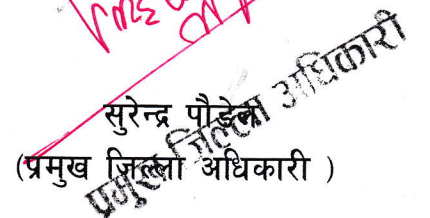 सुरेन्द्र पौडेल
(प्रमुख जिल्ला अधिकारी )
प्रमुख जिल्ला अधिकारी